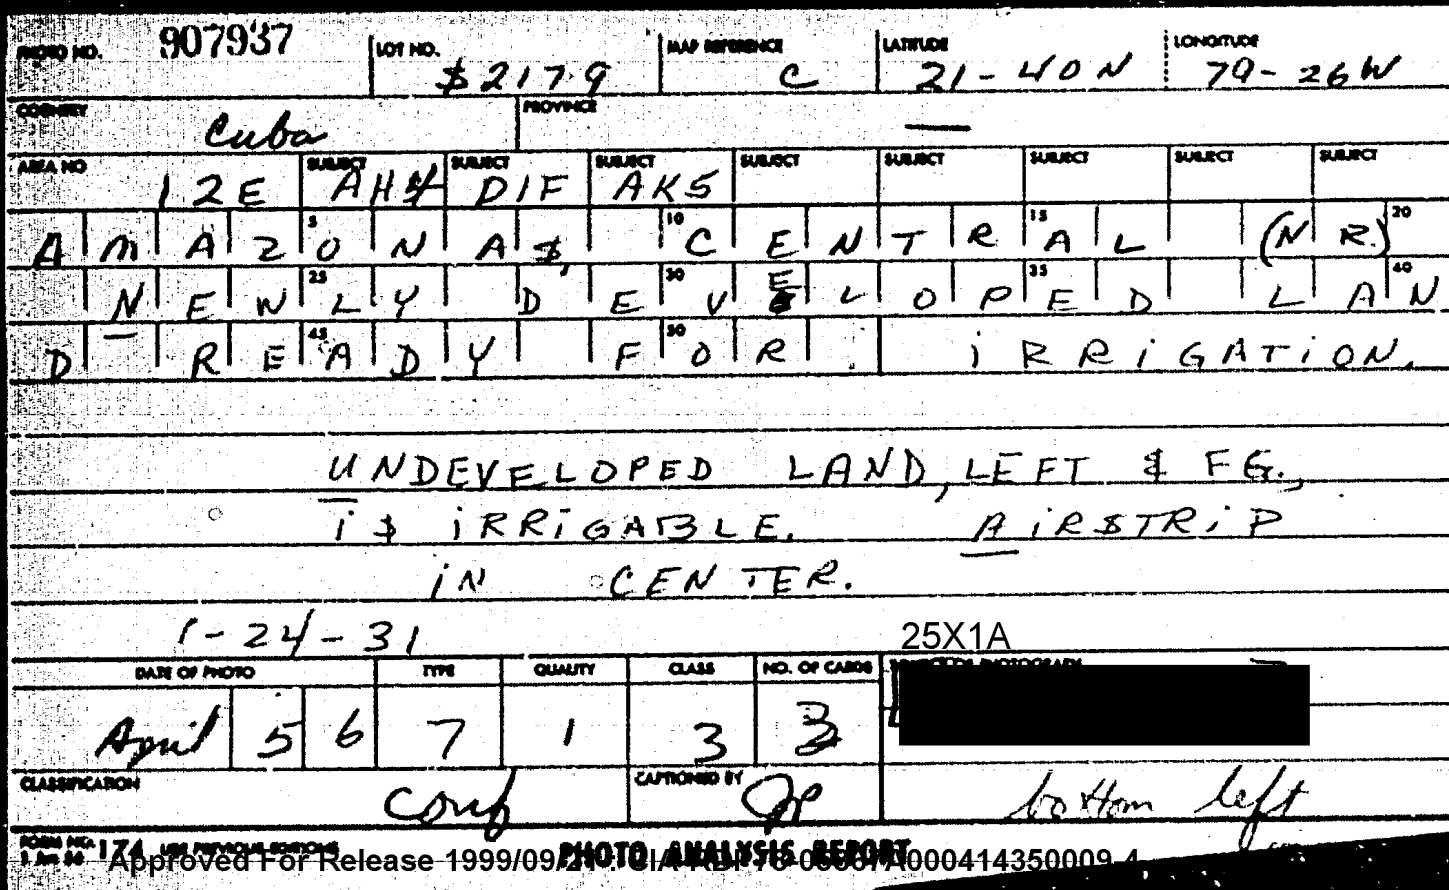 PHOTO NO. 907937 LOT NO. $2179 MAP REFERENCE C LATITUDE 21-40N LONGITUDE 79-26W
COUNTRY Cuba PROVINCE
AREA NO 12E SUBJECT AH4 SUBJECT DIF SUBJECT AK5 SUBJECT SUBJECT SUBJECT SUBJECT SUBJECT
AMAZONA$, CENTRAL (NR.) 5 10 15 20
NEWLY DEVELOPED LAN 25 30 35 40
D READY FOR. IRRIGATION. 45 50
UNDEVELOPED LAND, LEFT & FG.,
i$ iRRiGABLE. AiR$TRiP
iN CENTER.
1-24-31
25X1A
DATE OF PHOTO TYPE QUALITY CLASS NO. OF CARDS PHOTOGRAPH
April 56 7 1 3 3
CLASSIFICATION Conf CAPTIONED BY bottom left
FORM NO. 174 USE PREVIOUS EDITIONS PHOTO ANALYSIS REPORT
Approved For Release 1999/09/ 000414350009-4